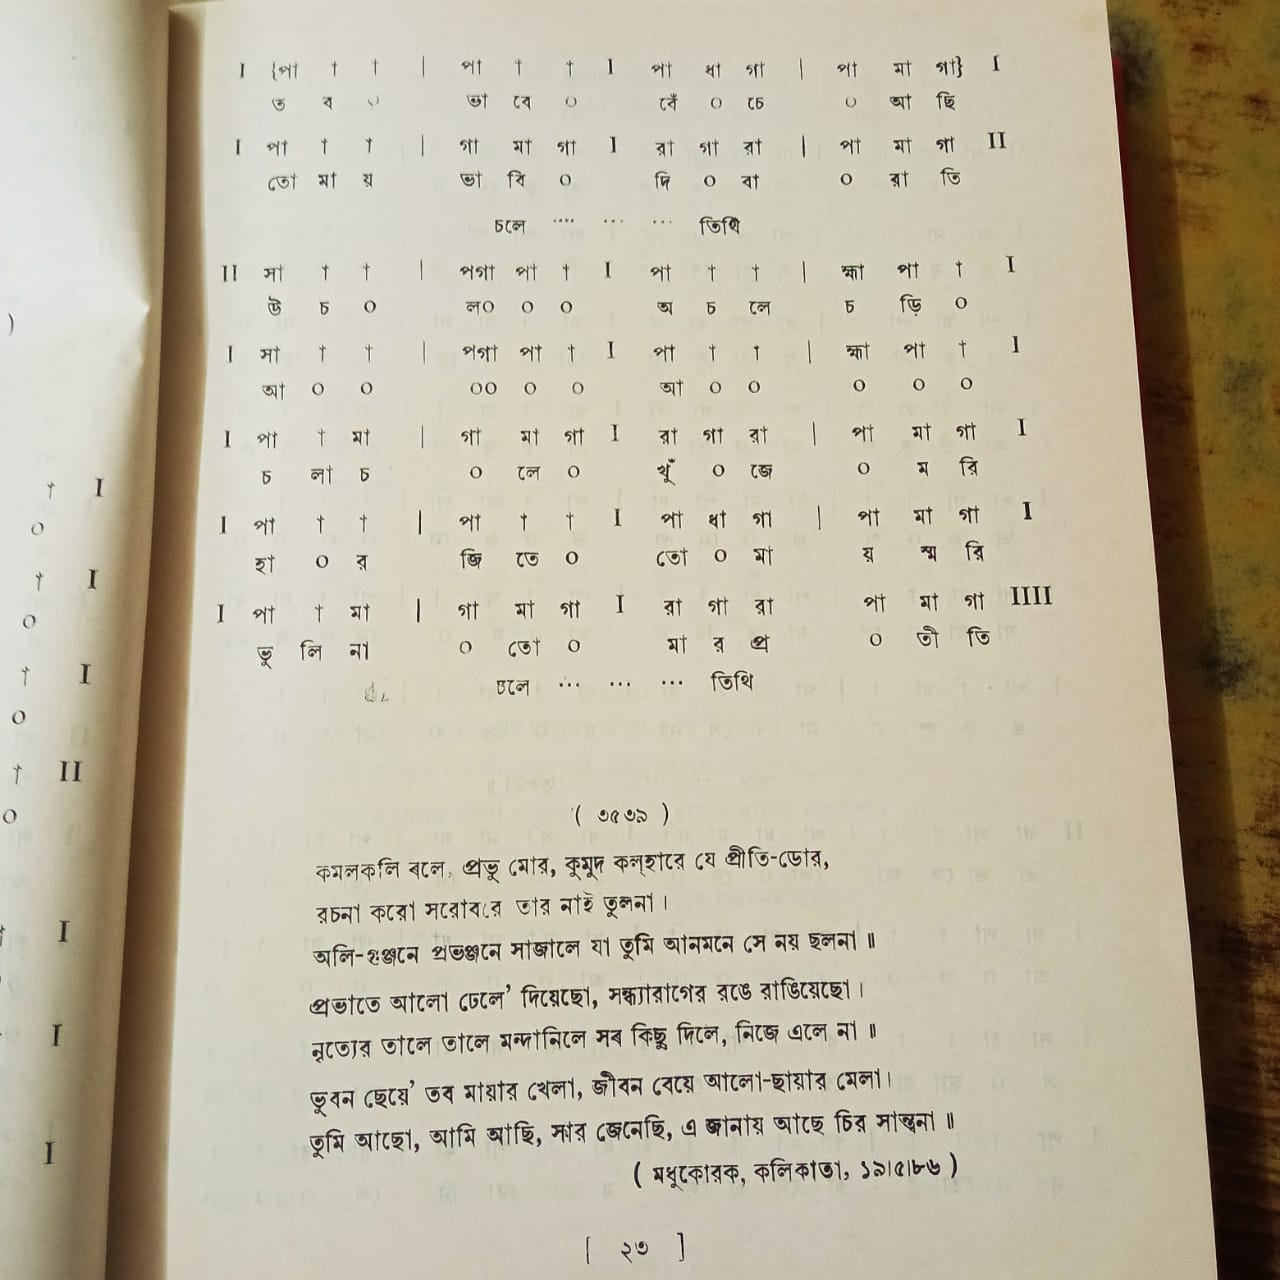 I {পা † † | পা † † I পা ধা গা | পা মা গা} I
ত ব ০ ভা বে ০ বেঁ ০ চে ০ আ ছি
I পা † † | গা মা গা I রা গা রা | পা মা গা II
তো মা য় ভা বি ০ দি ০ বা ০ রা তি
চলে .... ... ... তিথি
II সা † † | পগা পা † I পা † † | হ্মা পা † I
উ চ ০ ল০ ০ ০ অ চ লে চ ড়ি ০
I সা † † | পগা পা † I পা † † | হ্মা পা † I
আ ০ ০ ০০ ০ ০ আ ০ ০ ০ ০ ০
I পা † মা | গা মা গা I রা গা রা | পা মা গা I
চ লা চ ০ লে ০ খুঁ ০ জে ০ ম রি
I পা † † | পা † † I পা ধা গা | পা মা গা I
হা ০ র জি তে ০ তো ০ মা য় স্ম রি
I পা † মা | গা মা গা I রা গা রা পা মা গা IIII
ভু লি না ০ তো ০ মা র প্র ০ তী তি
চলে ... ... ... তিথি
( ৩৫৩৯ )
কমলকলি বলে, প্রভু মোর, কুমুদ কল্‌হারে যে প্রীতি-ডোর,
রচনা করো সরোবরে তার নাই তুলনা ।
অলি-গুঞ্জনে প্রভঞ্জনে সাজালে যা তুমি আনমনে সে নয় ছলনা ॥
প্রভাতে আলো ঢেলে’ দিয়েছো, সন্ধ্যারাগের রঙে রাঙিয়েছো ।
নৃত্যের তালে তালে মন্দানিলে সব কিছু দিলে, নিজে এলে না ॥
ভুবন ছেয়ে’ তব মায়ার খেলা, জীবন বেয়ে আলো-ছায়ার মেলা ।
তুমি আছো, আমি আছি, সার জেনেছি, এ জানায় আছে চির সান্ত্বনা ॥
( মধুকোরক, কলিকাতা, ১৯।৫।৮৬ )
[ ২৩ ]